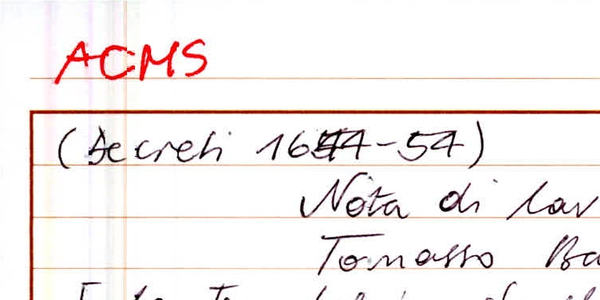 ACMS
(Decreti 1644-54)
Nota di lav
Tomasso Ba